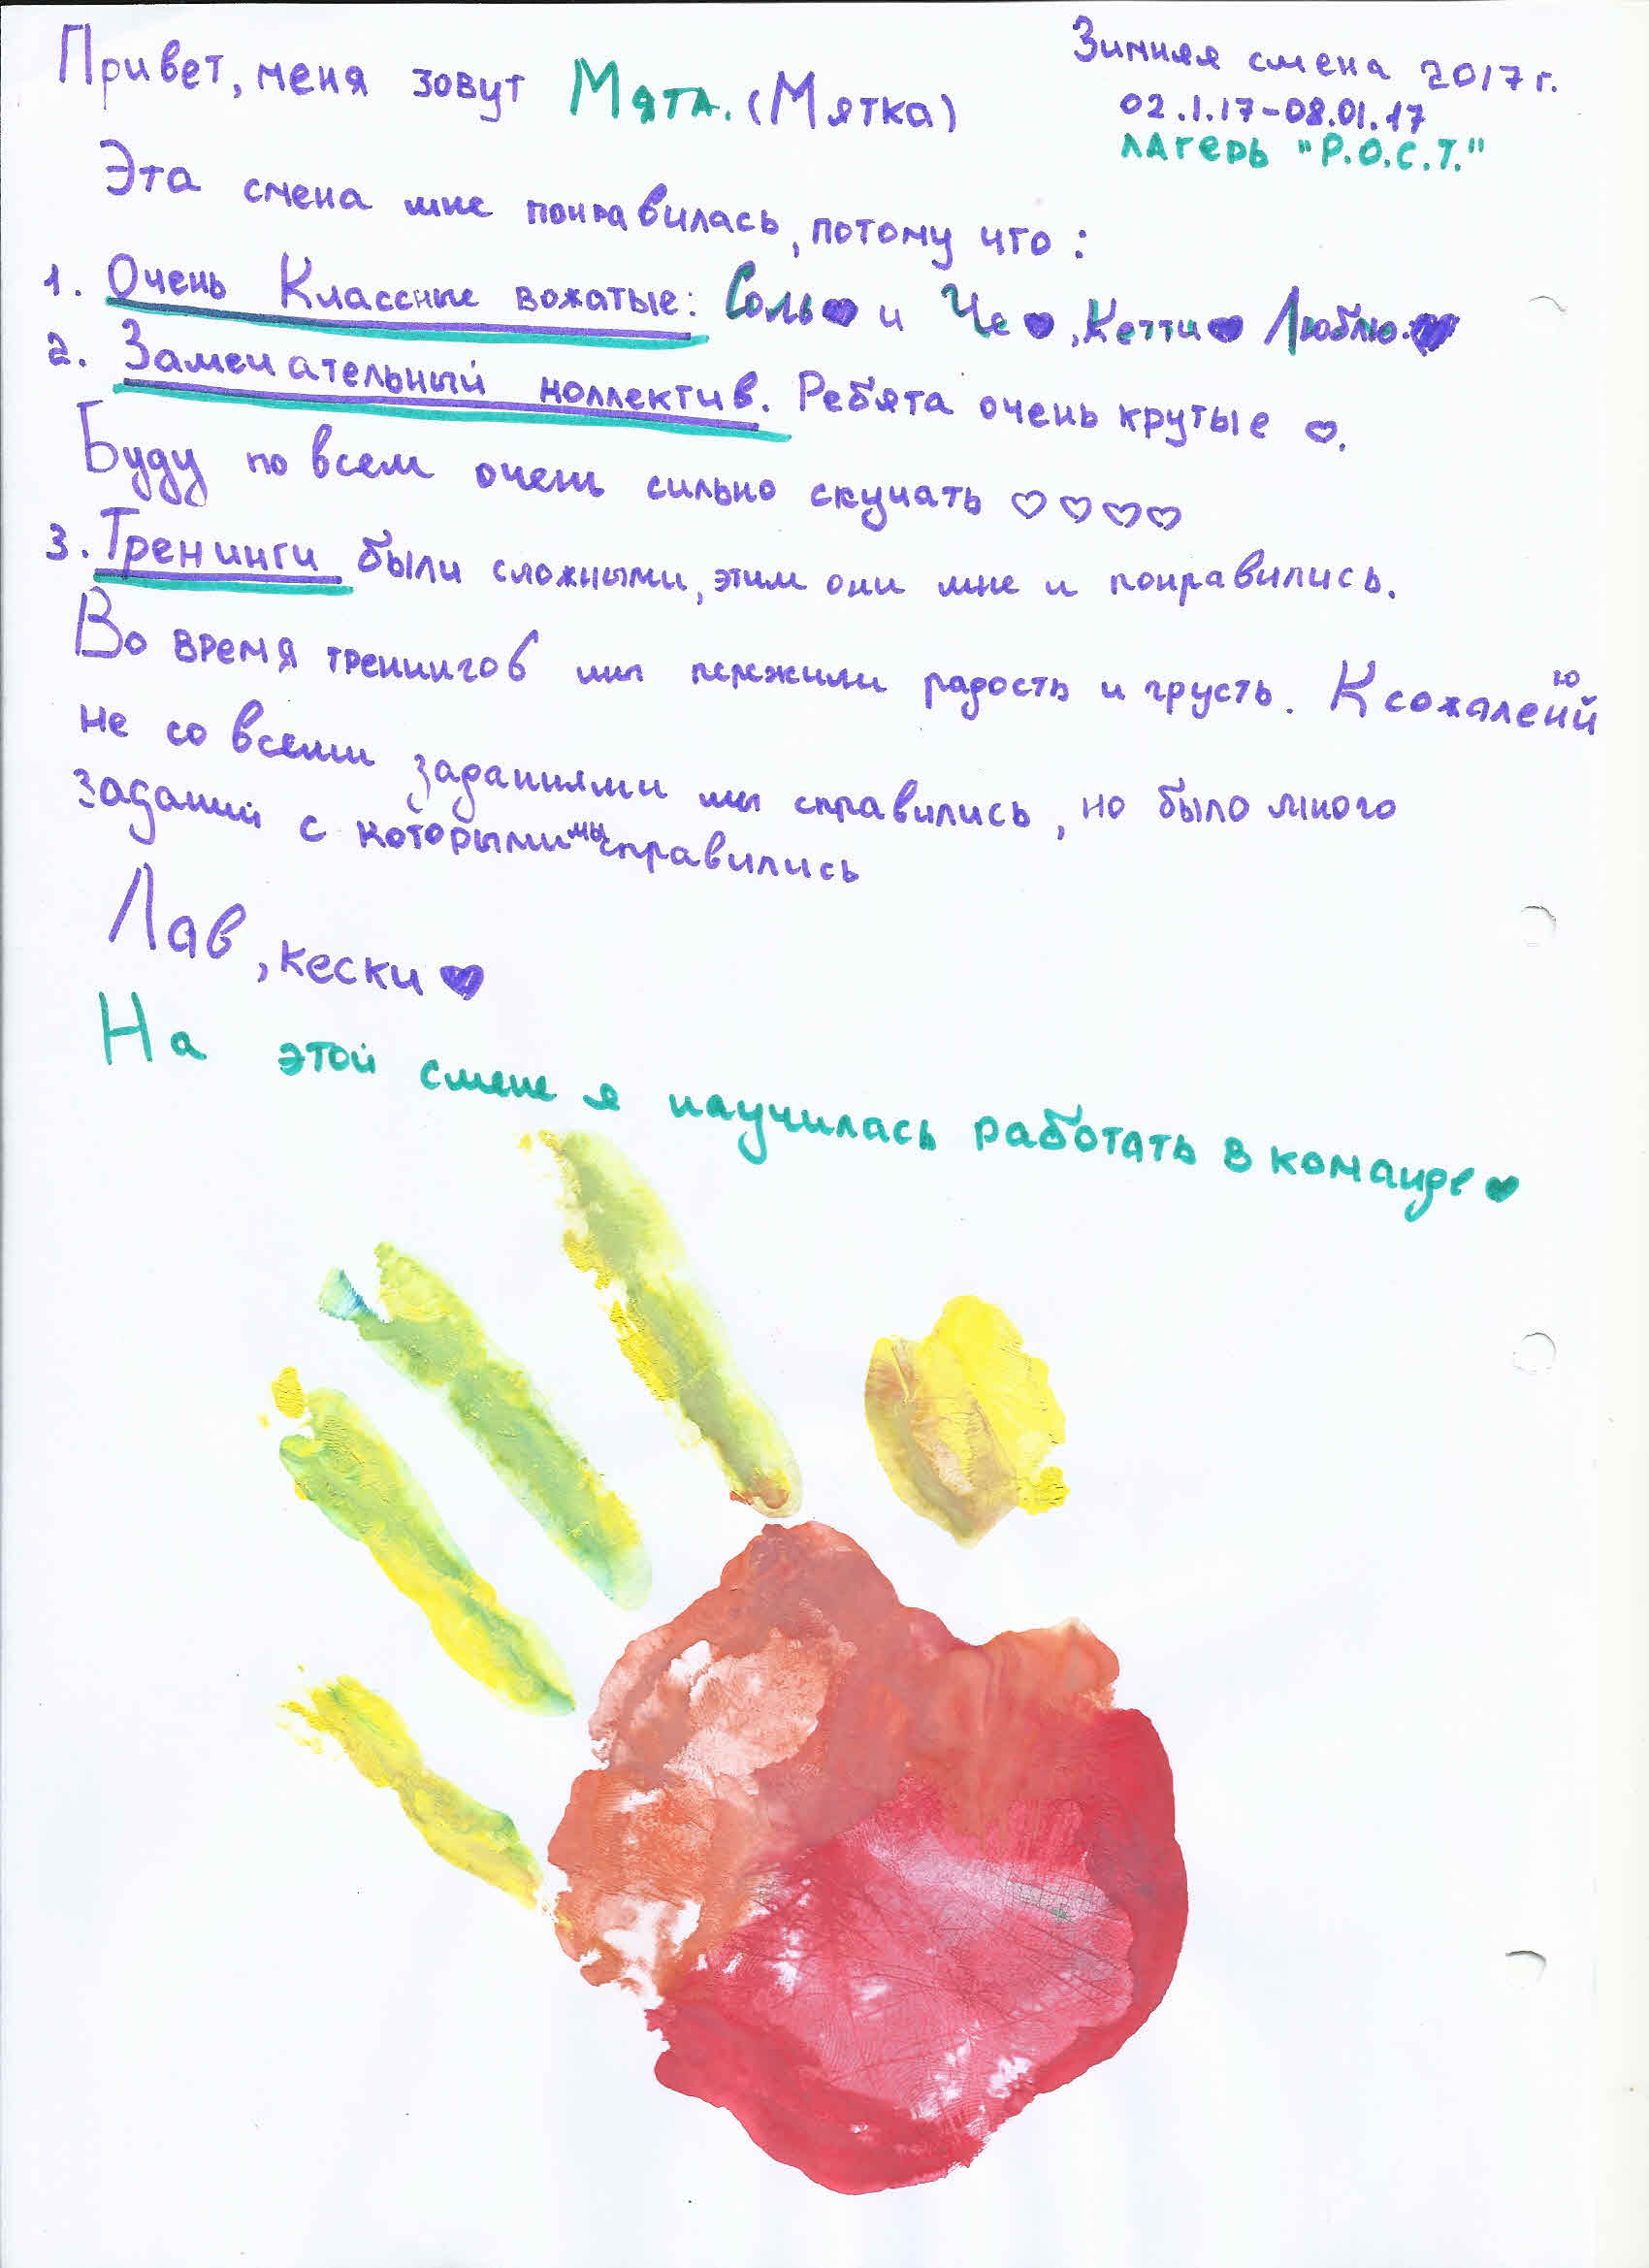 Привет, меня зовут Мята. (Мятка)
Зимняя смена 2017 г.
02.1.17-08.01.17
лагерь "Р.О.С.Т."
Эта смена мне понравилась, потому что:
1. Очень Классные вожатые: Соль♥ и Че♥, Кетти♥ Люблю.♥
2. Замечательный коллектив. Ребята очень крутые ♡.
Буду по всем очень сильно скучать ♡♡♡♡
3. Тренинги были сложными, этим они мне и понравились.
Во время тренингов мы пережили радость и грусть. К сожалений
ю
не со всеми заданиями мы справились, но было много
заданий с которыми мы справились
Лав, кески♥
На этой смене я научилась работать в команде♥